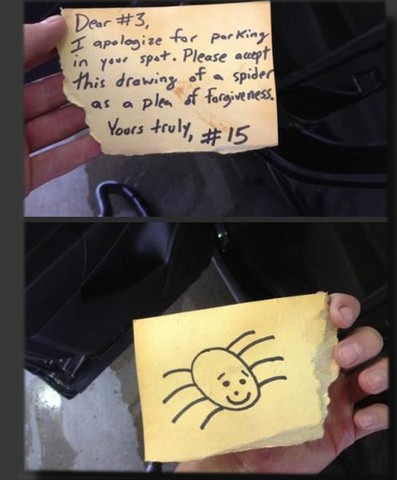 Dear #3,
I apologize for parking
in your spot. Please accept
this drawing of a spider
as a plea of forgiveness.
Yours truly, #15